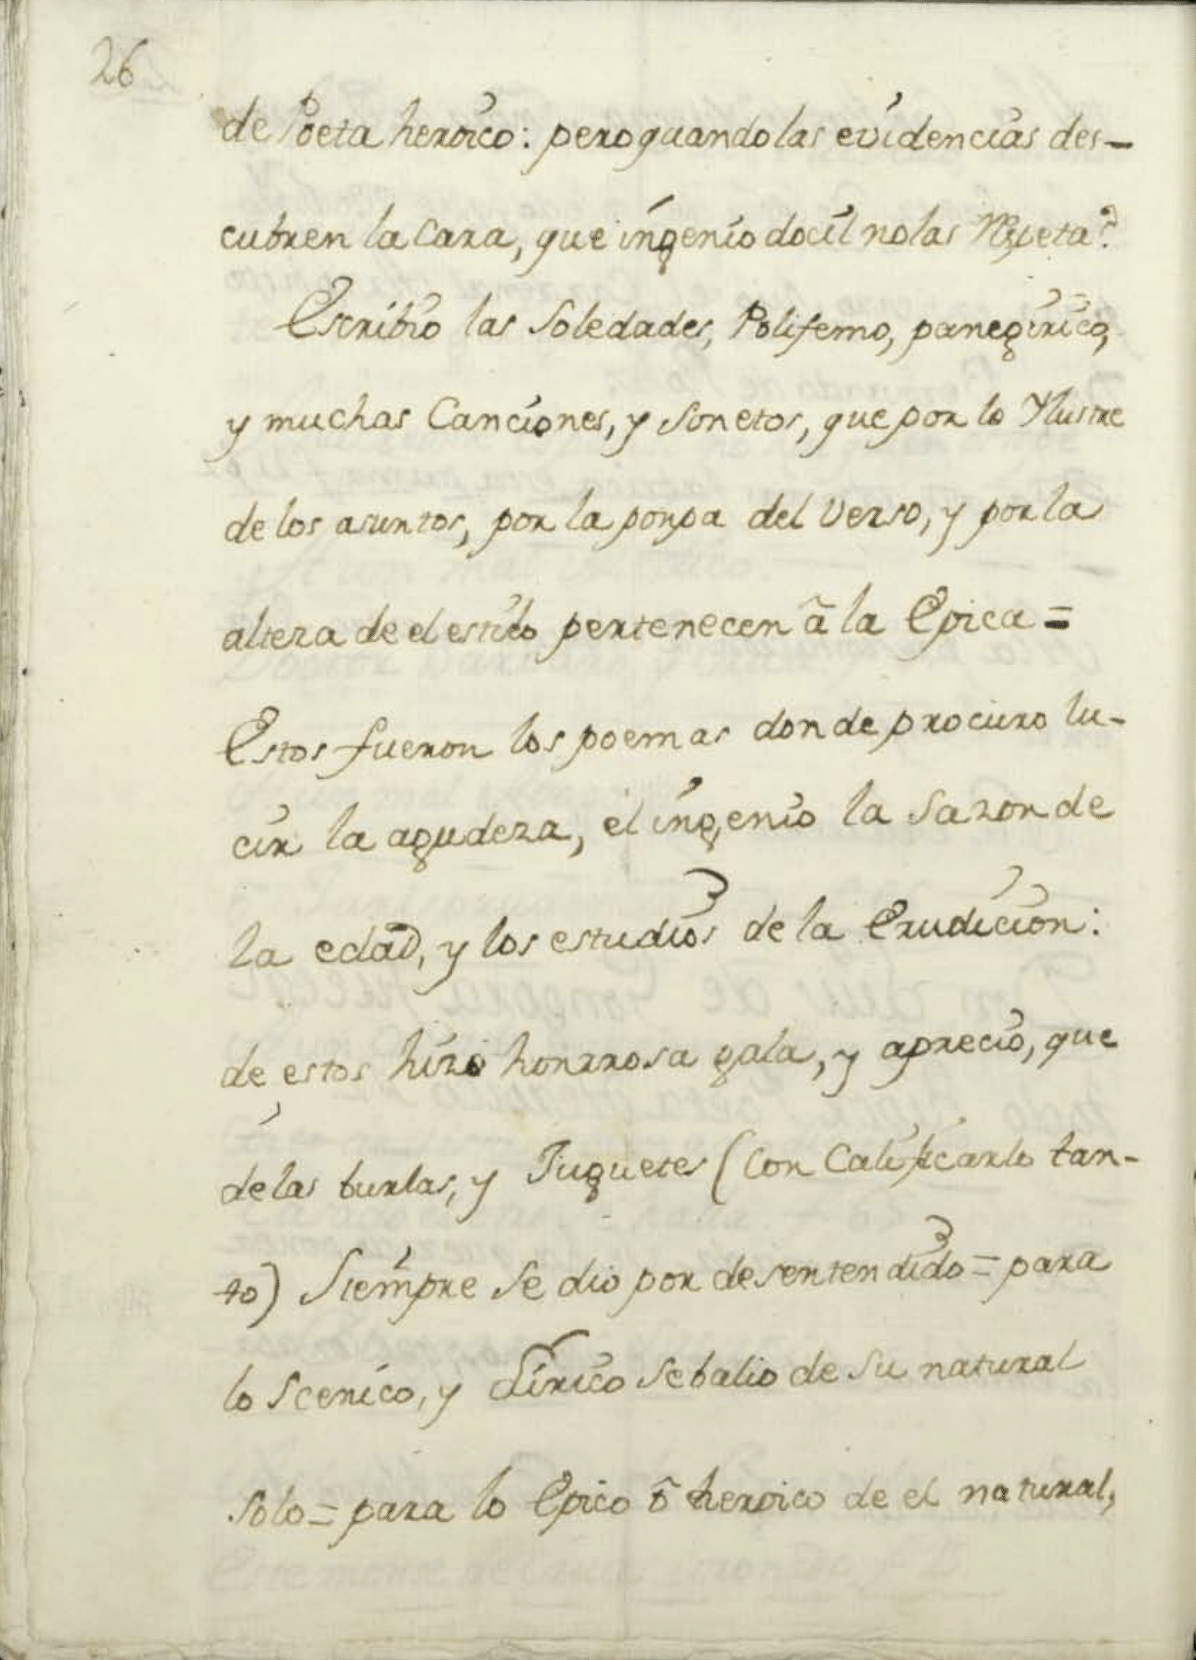 26
de Poeta heroico: pero quando las evidencias des-
cubren la Cara, que ingenio docil no las respeta?
Escribio las Soledades, Polifemo, panegirico,
y muchas Canciones, y Sonetos, que por lo Ylustre
de los asuntos, por la ponpa del Verso, y por la
alteza de el estilo pertenecen â la Epica =
Estos fueron los poemas donde procuro lu-
cir la agudeza, el ingenio la Sazon de
la edad, y los estudios de la Erudicion:
de estos hizo honrrosa gala, y aprecio, que
de las burlas, y Juguetes (con Calificarlo tan-
to) Siempre se dio por desentendido = para
lo Scenico, y Lirico se balio de Su natural
solo = para lo Epico ô heroico de el natural,